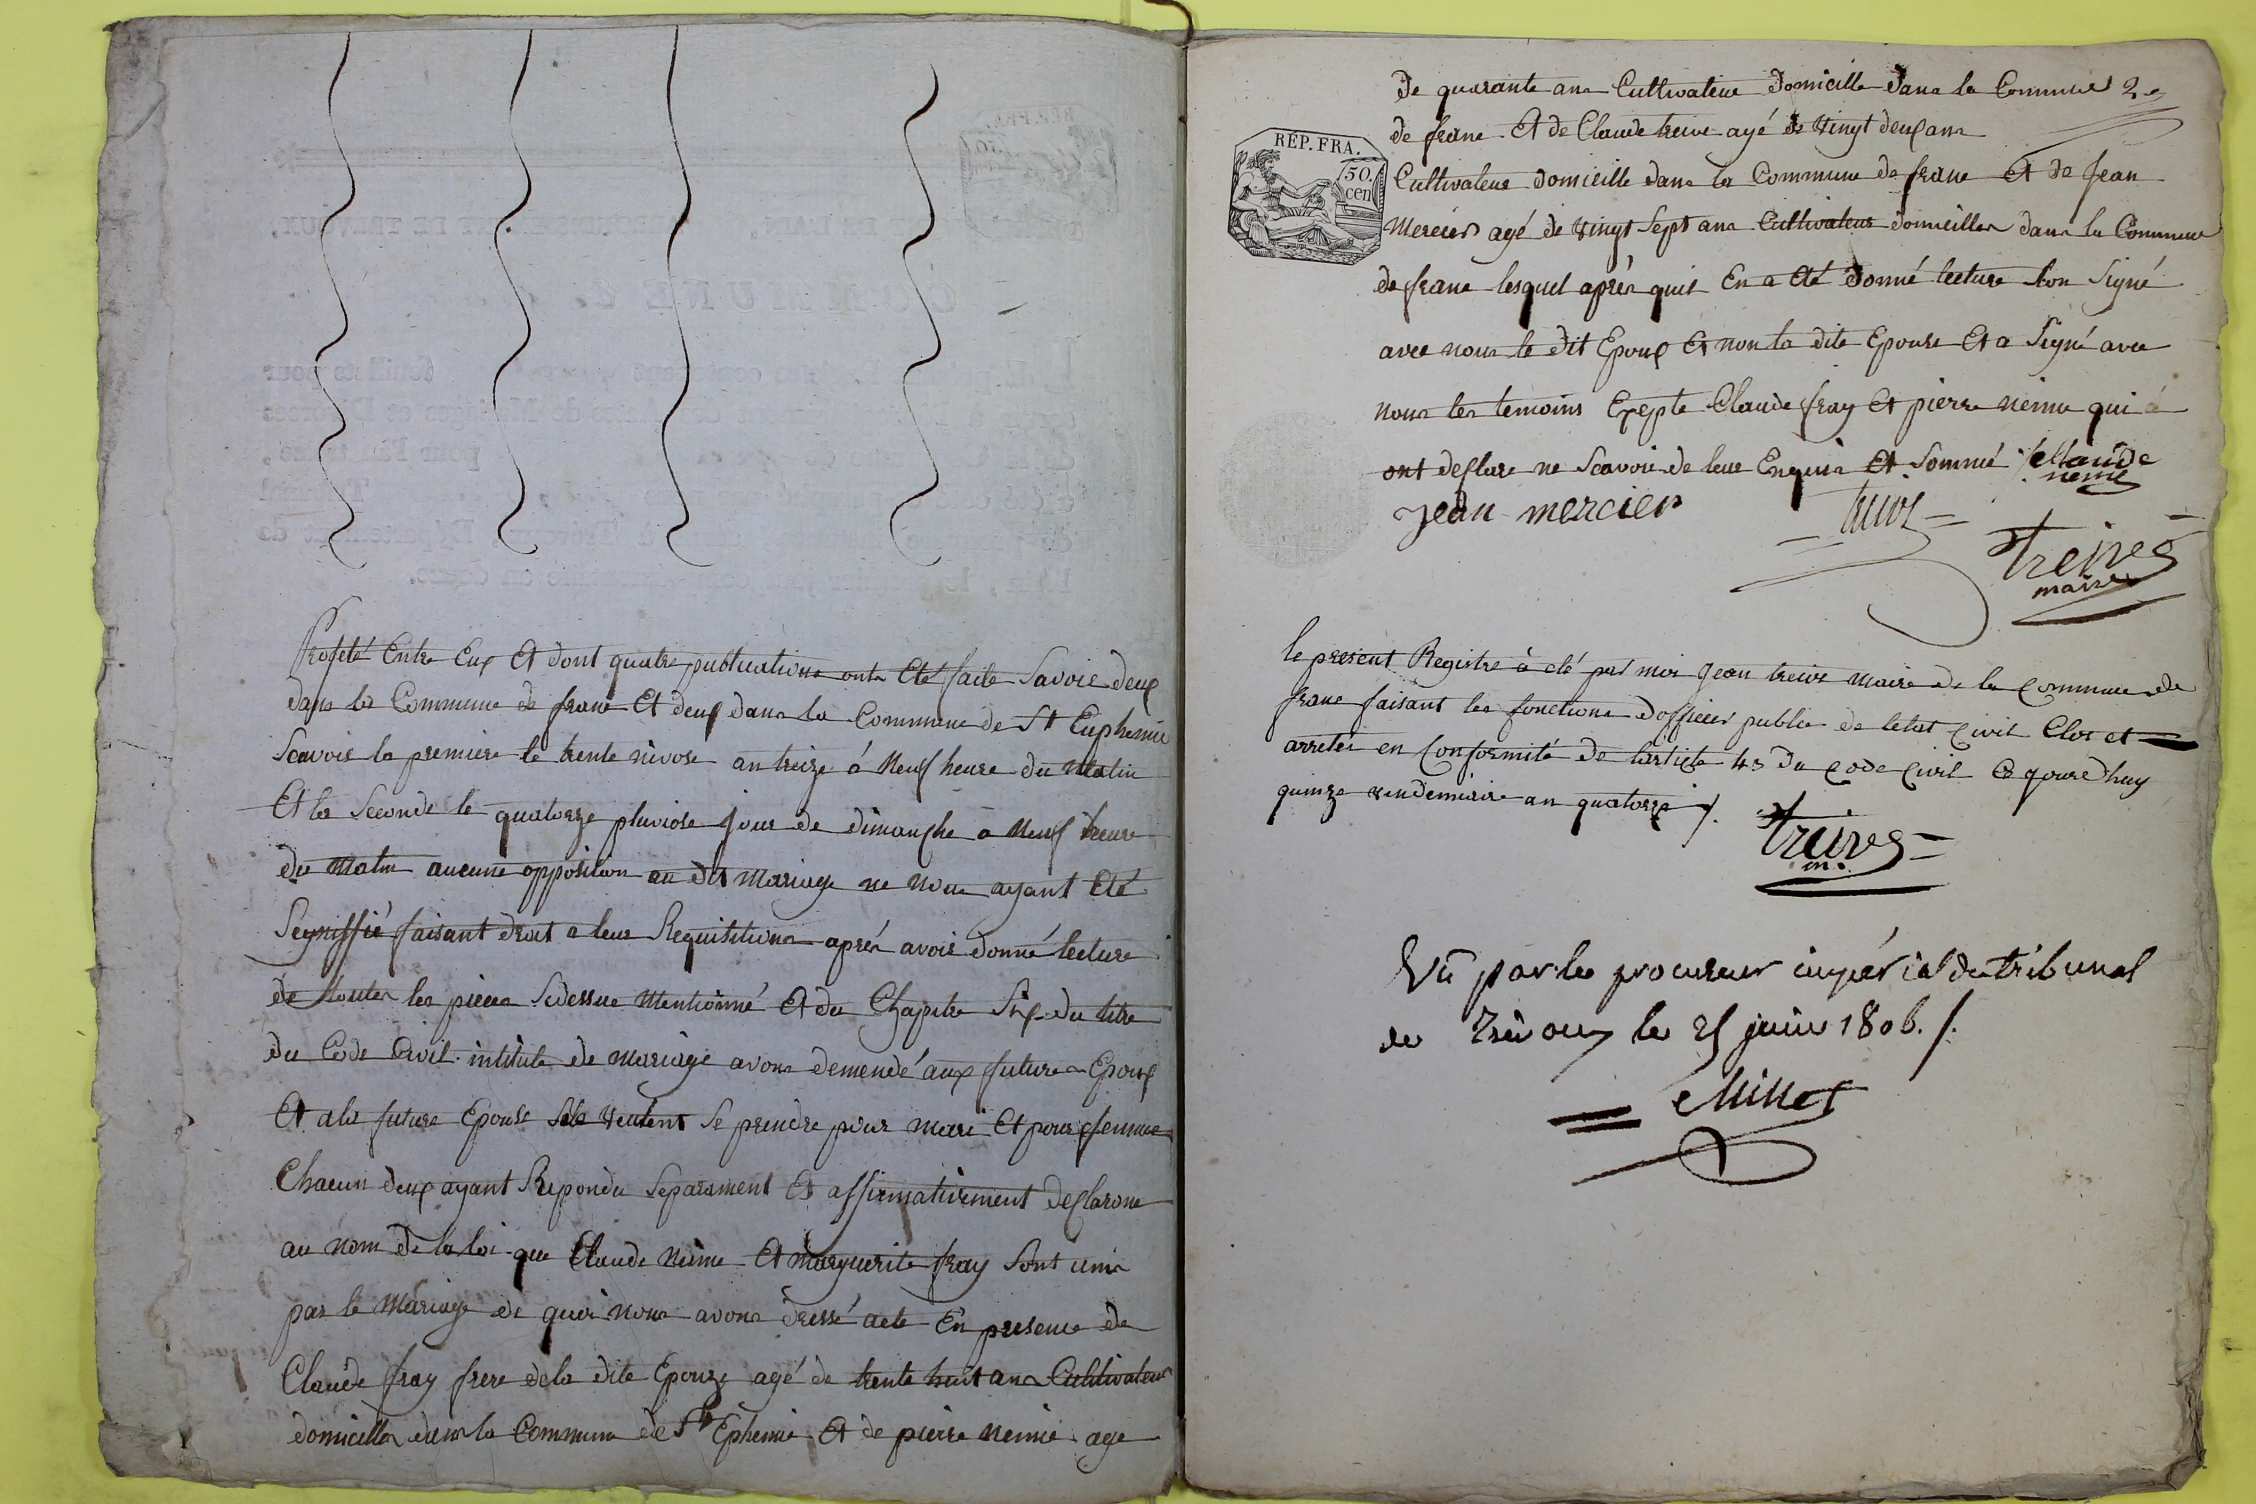 Projeté Entre Eux Et dont quatre publications onts Eté faite Savoir deux
dans la Commune de frans Et deux dans la Commune de St Euphemie
Scavoir la premiere le trente nivose an treize á Neuf heure du Matin
Et la Seconde le quatorze pluviose Jour de dimanche a Neuf heure
du Matin aucune opposition au dit Mariage ne nous ayant Eté
Segniffié faisant droit a leur Requisitions aprés avoir donné lecture
de toutes les pieces Sidessus Mentionné Et du Chapitre Six du titre
du Code Civil intitule de Mariage avons demendé aux future Epoux
Et a la future Epouse Sils veulent Se prendre pour mari Et pour femme
Chacun deux ayant Repondu Separament Et affirmativement desclarons
au nom de la loi que Claude Neime Et Marguerite fray Sont unis
par le Mariage de quoi nous avons dressé acte En presence de
Claude fray frere de la dite Epouze agé de trente huit ans Cultivateur
domicilles dans la Commune de Ste Ephemie Et de pierre Neime age
de quarante ans Cultivateur domicille dans la Commune 2
de frans Et de Claude treive agé de vingt deux ans
RÉP. FRA.
50.
cen
Cultivateur domicille dans la Commune de frans Et de Jean
Mercier agé de vingt Sept ans Cultivateur domicilles dans la Commune
de frans lesquel aprés quil En a Eté donné lecture lon Signé
avec nous le dit Epoux Et non la dite Epouse Et a Signé avec
nous les temoins Exepte Claude fray Et pierre neime qui á
ont desclare ne Scavoir de leur Enquis Et Sommé Claude
neime
Jean mercier
treive
treives
maire
le present Registre à eté par moi Jean treive maire de la commune de
frans faisant les fonctions dofficier public de letat civil Clos et
arretés en conformité de larticle 43 du code civil ce jourd'huy
quinze vendemiaire an quatorze ./.
treives
m.
Vû par le procureur impérial du tribunal
de Trévoux le 25 juin 1806. /.
Millet